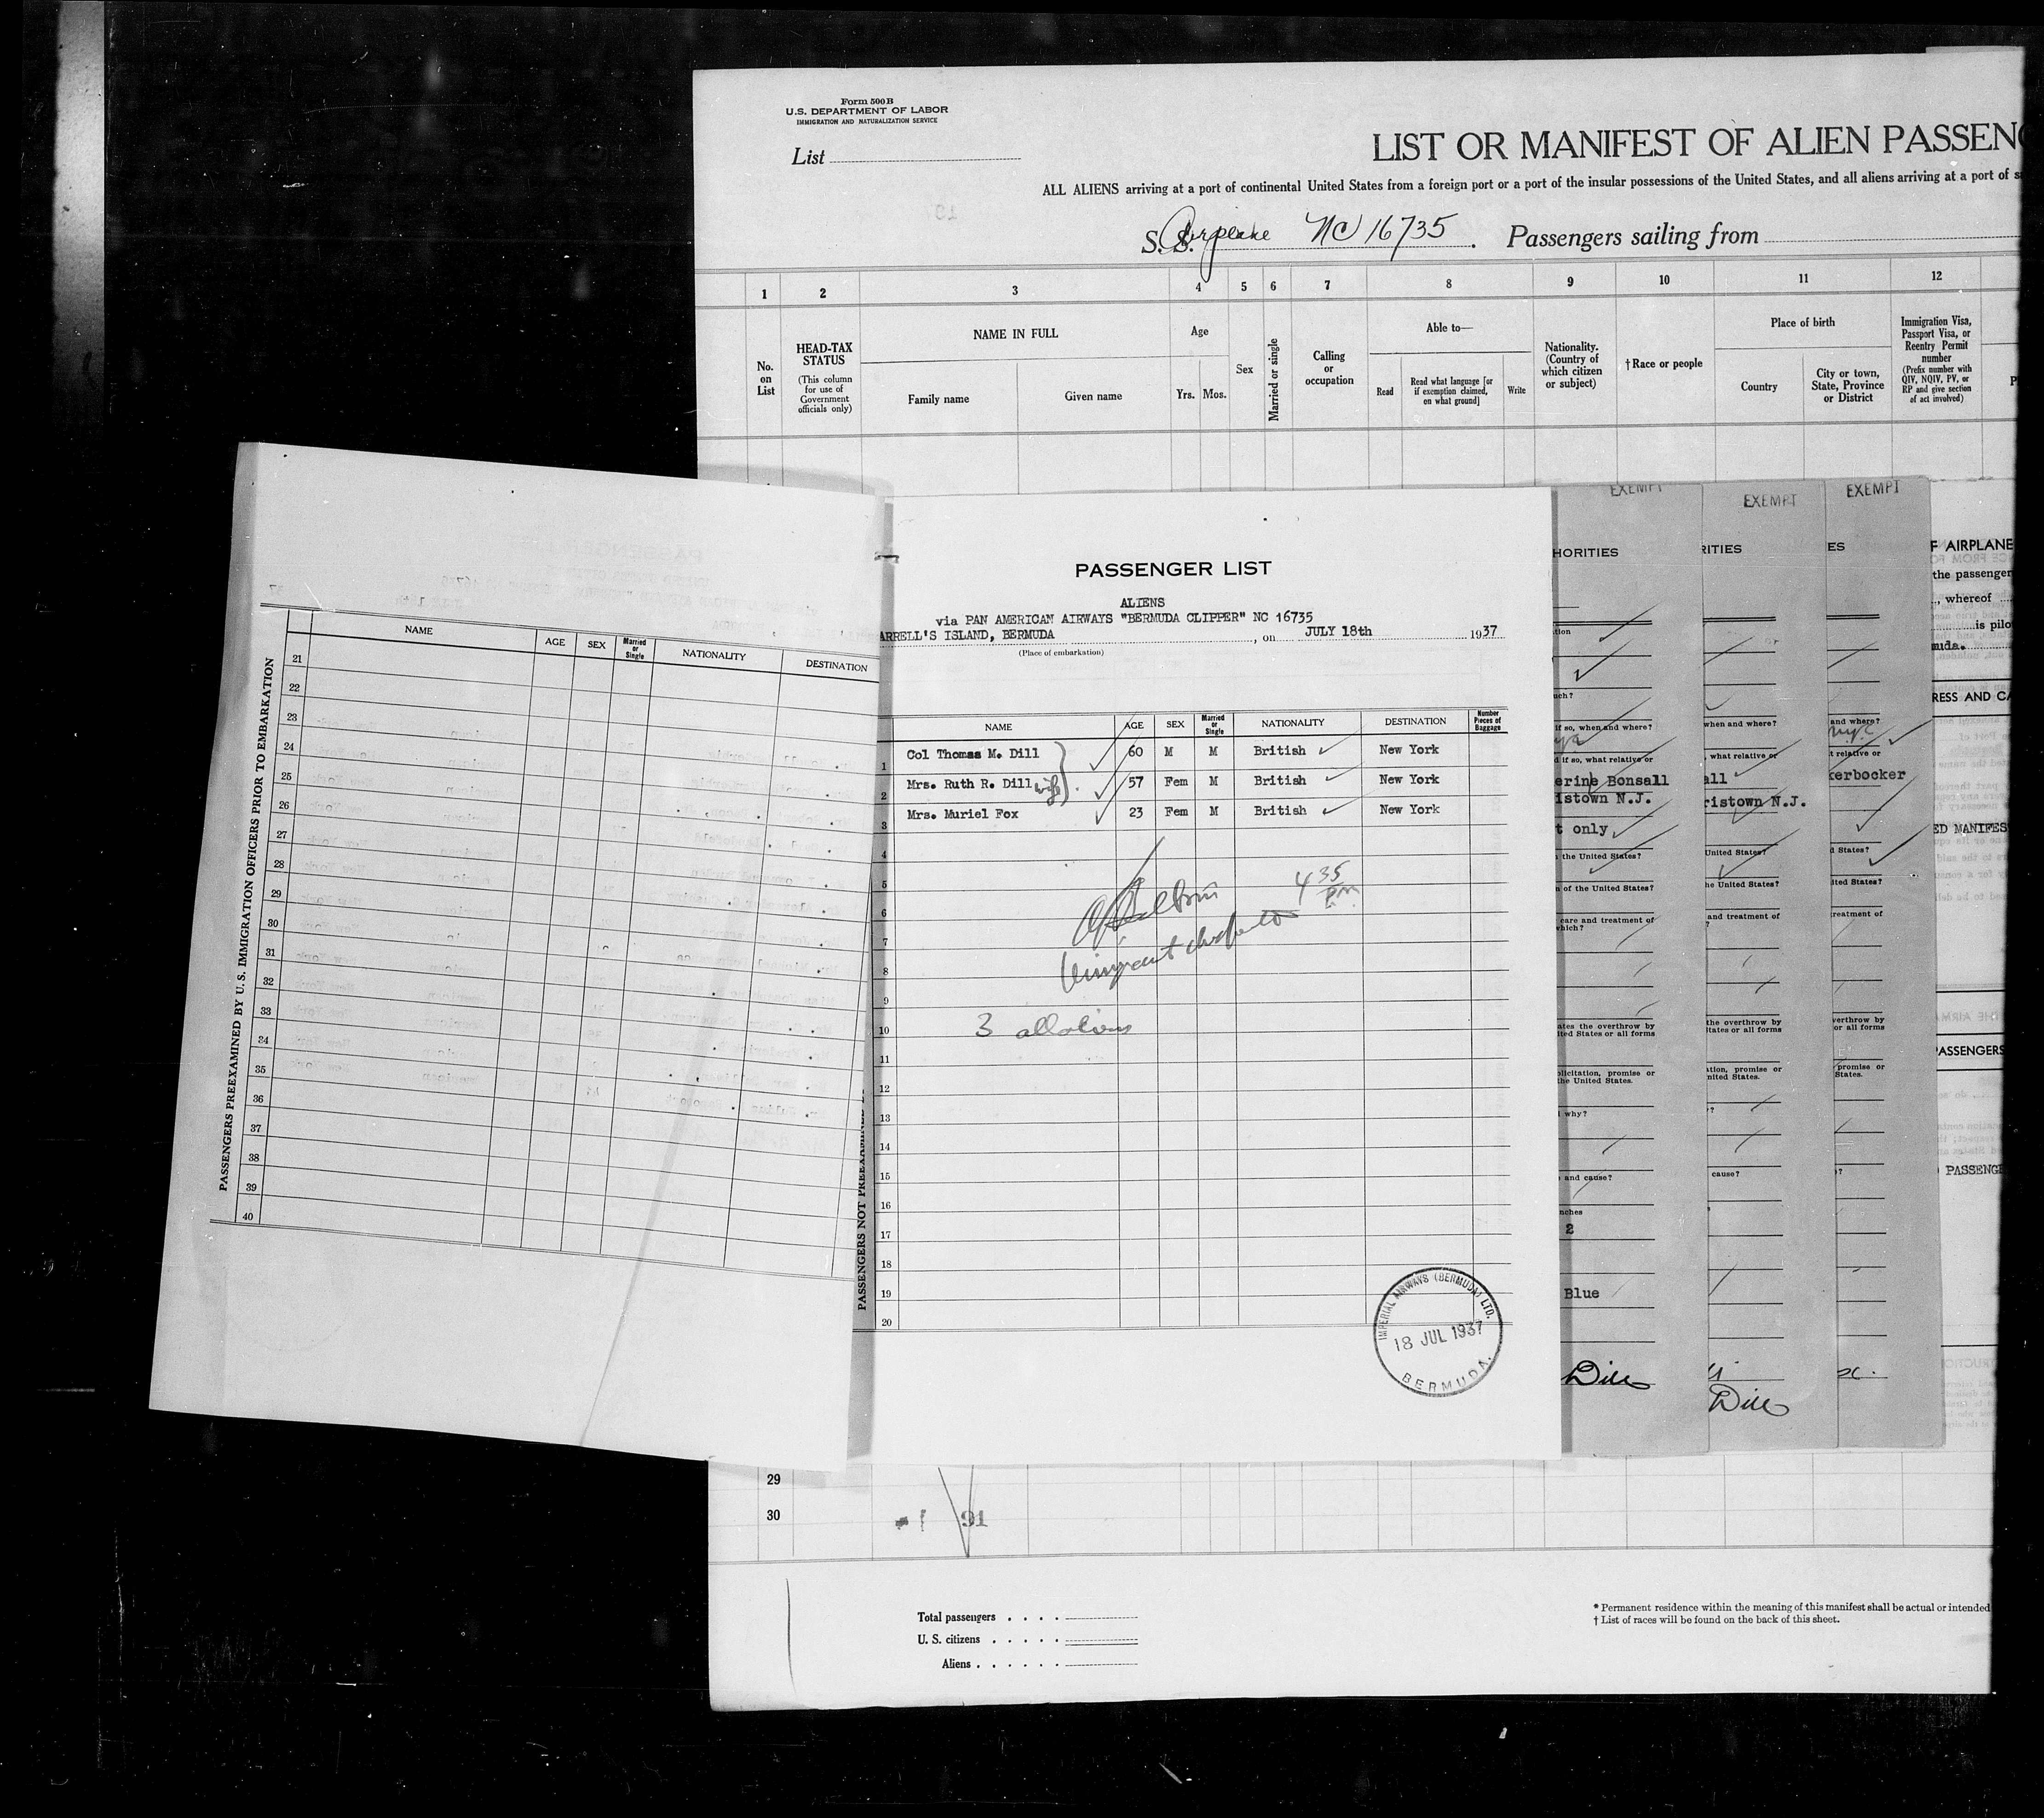 Form 500B
U.S. DEPARTMENT OF LABOR
IMMIGRATION AND NATURALIZATION SERVICE
List
LIST OR MANIFEST OF ALIEN PASSENG
ALL ALIENS arriving at a port of continental United States from a foreign port or a port of the insular possessions of the United States, and all aliens arriving at a port of s
S. S. Airplane NC 16735. Passengers sailing from
1 2 3 4 5 6 7 8 9 10 11 12
No. on List
HEAD-TAX STATUS
(This column for use of Government officials only)
NAME IN FULL
Family name
Given name
Age
Yrs. Mos.
Sex
Married or single
Calling or occupation
Able to—
Read
Read what language [or if exemption claimed, on what ground]
Write
Nationality. (Country of which citizen or subject)
† Race or people
Place of birth
Country
City or town, State, Province or District
Immigration Visa, Passport Visa, or Reentry Permit number
(Prefix number with QIV, NQIV, PV, or RP and give section of act involved)
PASSENGERS PREEXAMINED BY U. S. IMMIGRATION OFFICERS PRIOR TO EMBARKATION
NAME AGE SEX Married or Single NATIONALITY DESTINATION
21
22
23
24
25
26
27
28
29
30
31
32
33
34
35
36
37
38
39
40
PASSENGER LIST
ALIENS
via PAN AMERICAN AIRWAYS "BERMUDA CLIPPER" NC 16735
ARRELL'S ISLAND, BERMUDA, on JULY 18th 1937
(Place of embarkation)
PASSENGERS NOT PREEXAMINED
NAME AGE SEX Married or Single NATIONALITY DESTINATION Number Pieces of Baggage
1 Col Thomas M. Dill 60 M M British New York
2 Mrs. Ruth R. Dill wife 57 Fem M British New York
3 Mrs. Muriel Fox 23 Fem M British New York
4
5
6
7
8
9
10
11
12
13
14
15
16
17
18
19
20
4 35 Pm
3 all aliens
IMPERIAL AIRWAYS (BERMUDA) LTD.
18 JUL 1937
BERMUDA.
EXEMPT
HORITIES
tion
uch?
if so, when and where?
d if so, what relative or
erine Bonsall
istown N.J.
t only
the United States?
n of the United States?
care and treatment of
which?
ates the overthrow by
ited States or all forms
olicitation, promise or
the United States.
why?
and cause?
nches
2
Blue
Dill
EXEMPT
RITIES
when and where?
, what relative or
all
ristown N.J.
United States?
he United States?
and treatment of
?
the overthrow by
tates or all forms
ation, promise or
nited States.
?
cause?
Dill
EXEMPT
ES
and where?
nyc
t relative or
kerbocker
d States?
ited States?
reatment of
verthrow by
or all forms
promise or
States.
?
x.
F AIRPLANE
the passenger
, whereof
is pilo
muda.
RESS AND CA
ED MANIFES
PASSENGERS
PASSENGE
29
30
91
Total passengers
U. S. citizens
Aliens
* Permanent residence within the meaning of this manifest shall be actual or intended
† List of races will be found on the back of this sheet.